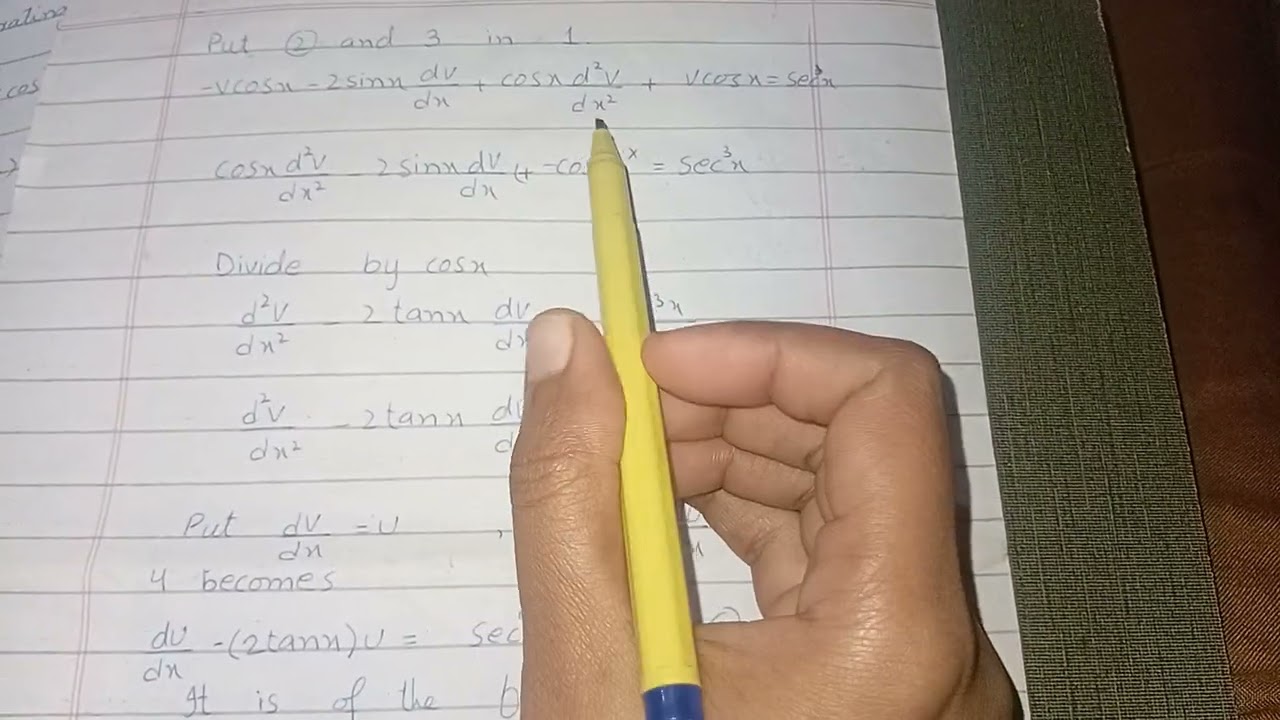 rating
cos
Put ② and 3 in 1.
-vcosx - 2sinx dv/dx + cosx d²v/dx² + vcosx = sec³x
cosx d²v/dx² - 2sinx dv/dx + -cos x = sec³x
Divide by cosx
d²v/dx² - 2tanx dv/dx 3x
d²v/dx² - 2tanx dv
Put dv/dx = u ,
4 becomes
du/dx - (2tanx)u = sec
It is of the